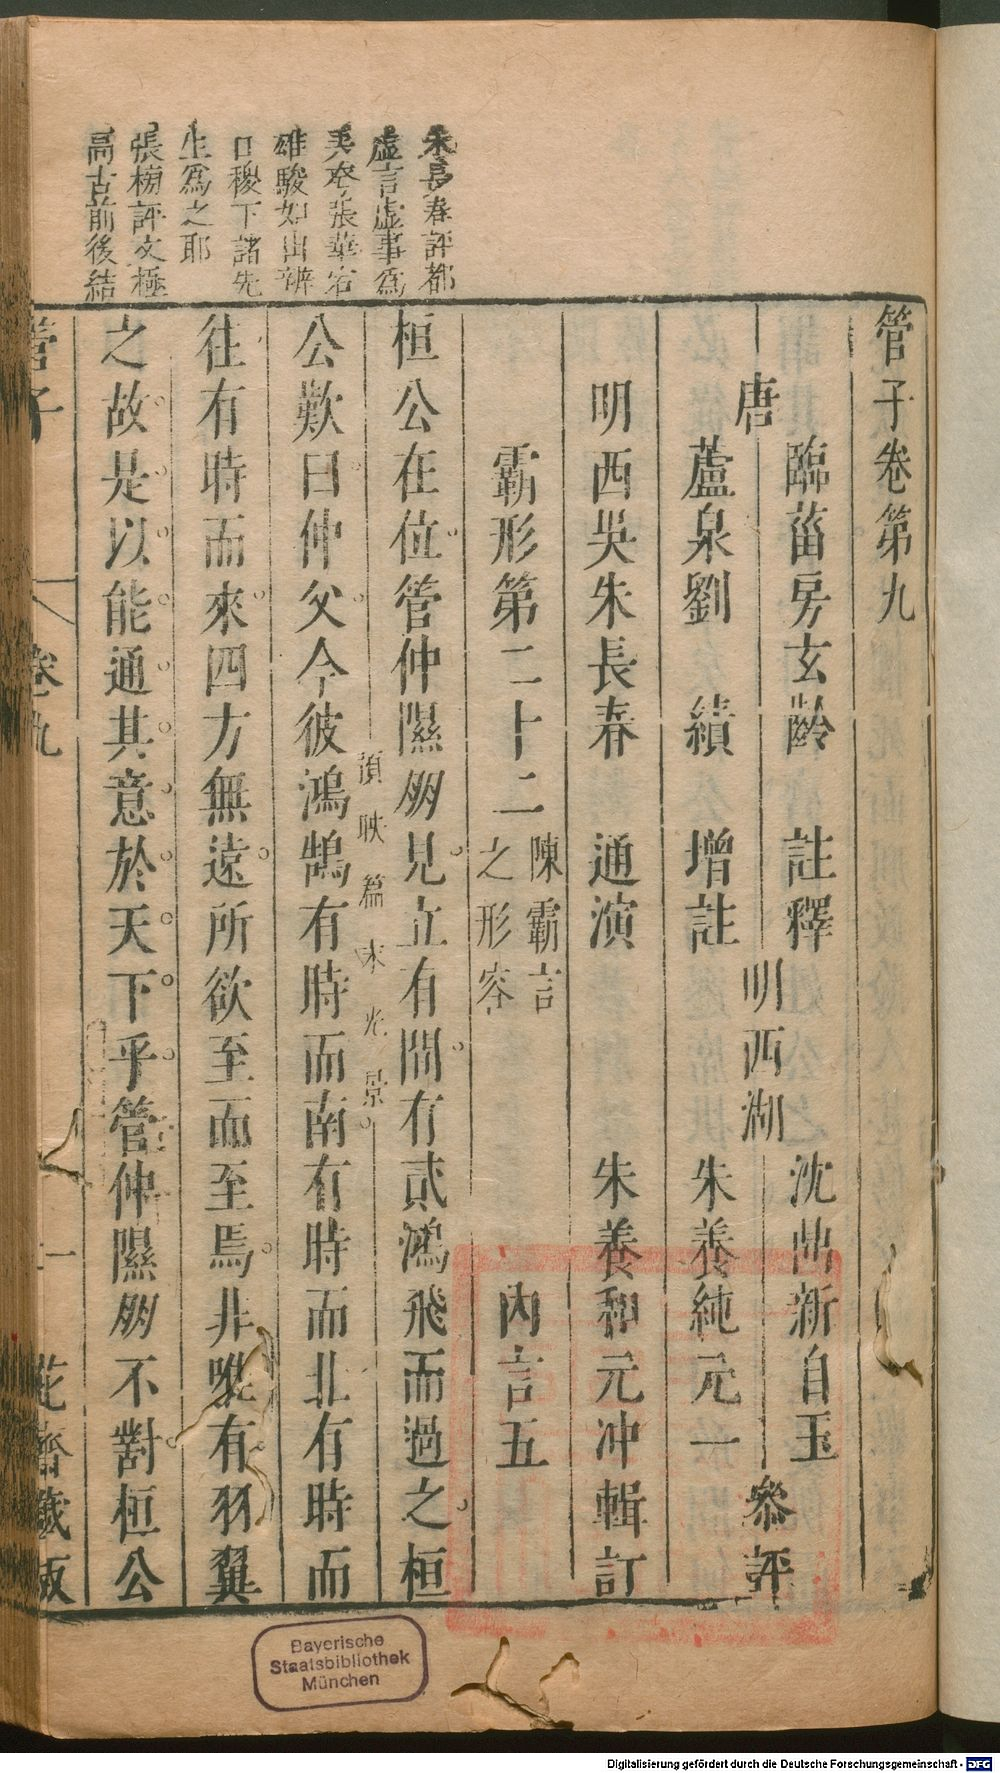 管子卷第九
唐
臨菑房玄齡 註釋
蘆泉劉 績 增註
明西湖
沈鼎新自玉
朱養純元一
參評
明西吳朱長春 通演 朱養和元冲輯訂
霸形第二十二
陳霸言
之形容
內言五
桓公在位管仲隰朋見立有間有貳鴻飛而過之桓
頂映篇末光景
公歎曰仲父今彼鴻鵠有時而南有時而北有時而
往有時而來四方無遠所欲至而至焉非唯有羽翼
之故是以能通其意於天下乎管仲隰朋不對桓公
管子 卷九 一 花齋藏板
朱長春評都
虛言虛事為
美 張華宕
雄駿如出辨
口稷下諸先
生為之耶
張榜評文極
高古前後結
Bayerische
Staatsbibliothek
München
Digitalisierung gefördert durch die Deutsche Forschungsgemeinschaft - DFG